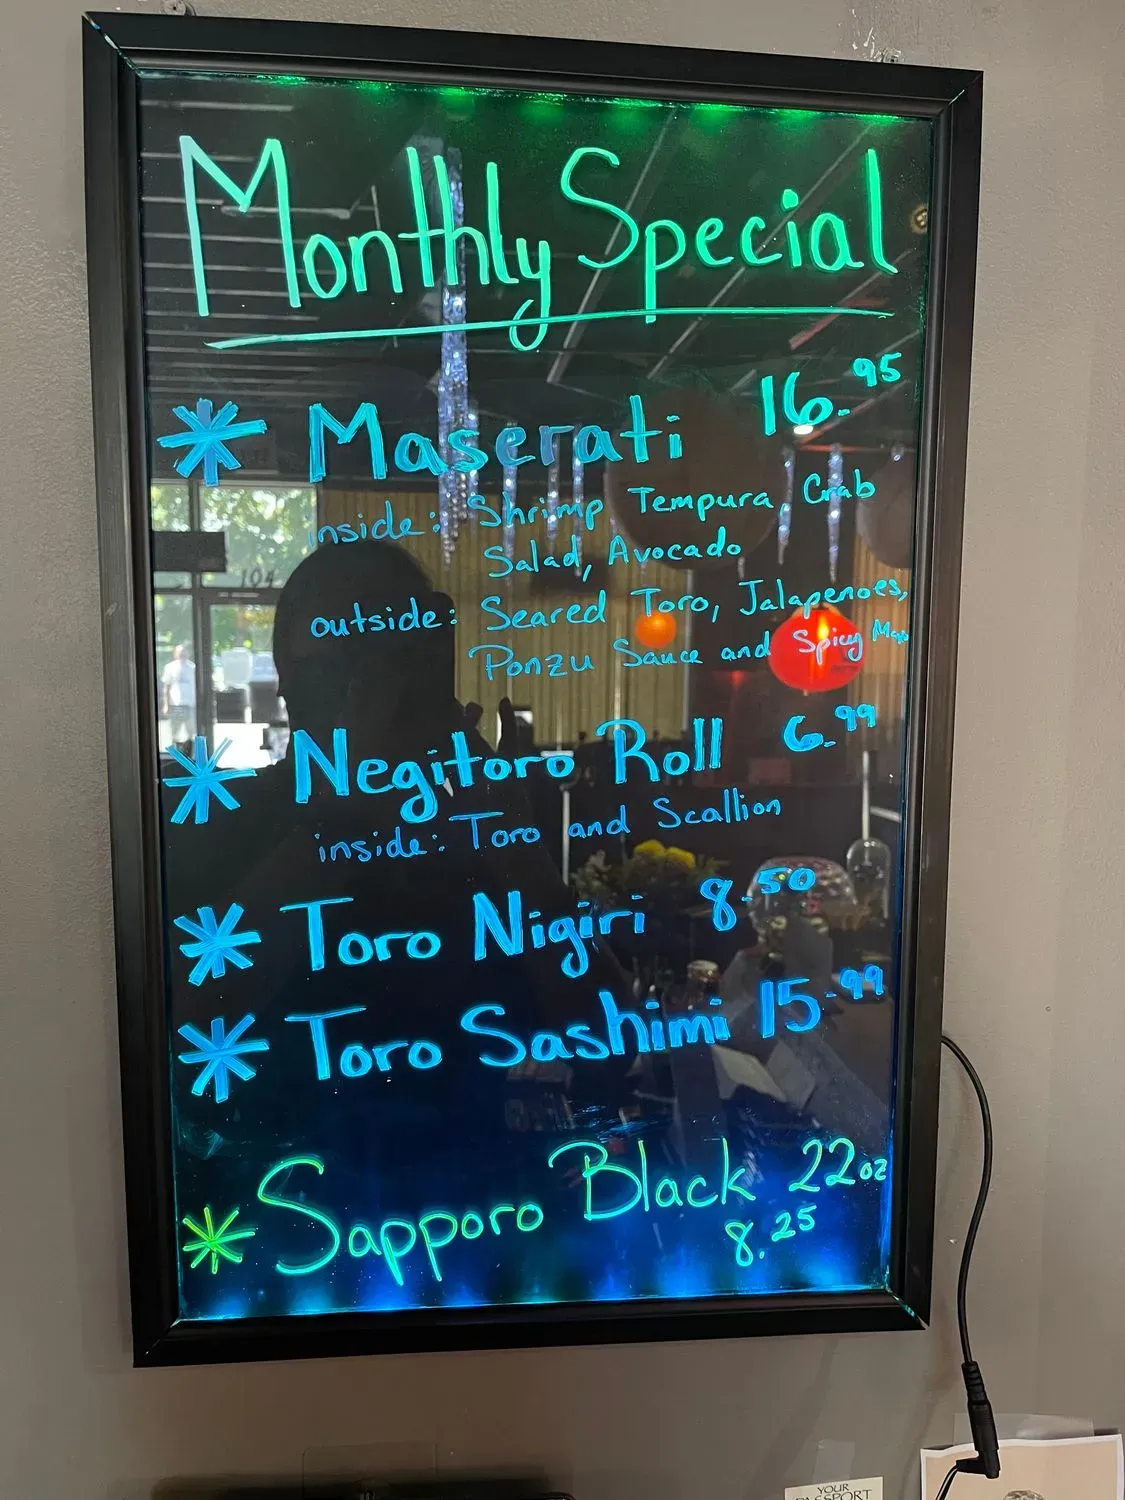 Monthly Special
* Maserati 16.95
inside: Shrimp Tempura, Crab
Salad, Avocado
outside: Seared Toro, Jalapenoes,
Ponzu Sauce and Spicy Mayo
* Negitoro Roll 6.99
inside: Toro and Scallion
* Toro Nigiri 8.50
* Toro Sashimi 15.99
* Sapporo Black 22oz
8.25
YOUR
PASSPORT